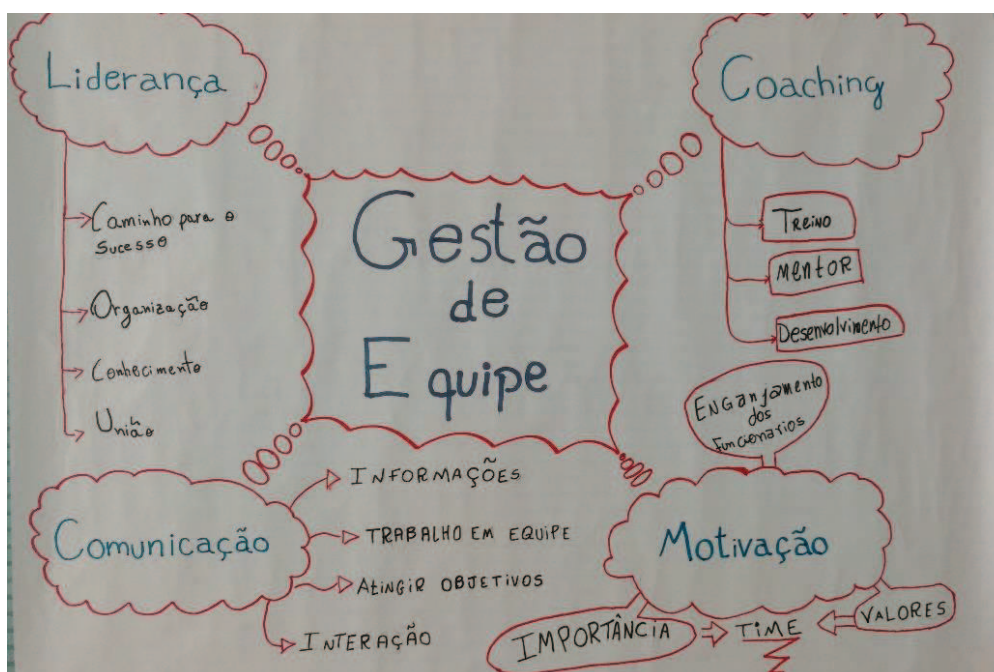 Liderança
Caminho para o
Sucesso
Organização
Conhecimento
União
Gestão
de
Equipe
Coaching
Treino
Mentor
Desenvolvimento
Comunicação
INFORMAÇÕES
TRABALHO EM EQUIPE
ATINGIR OBJETIVOS
INTERAÇÃO
Motivação
ENGanjamento
dos
Funcionarios
IMPORTÂNCIA
TIME
VALORES